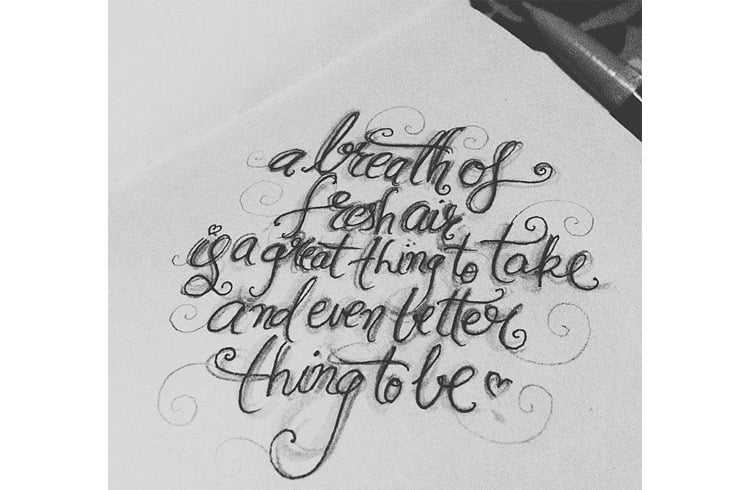 a breath of
fresh air
is a great thing to take
and even better
thing to be